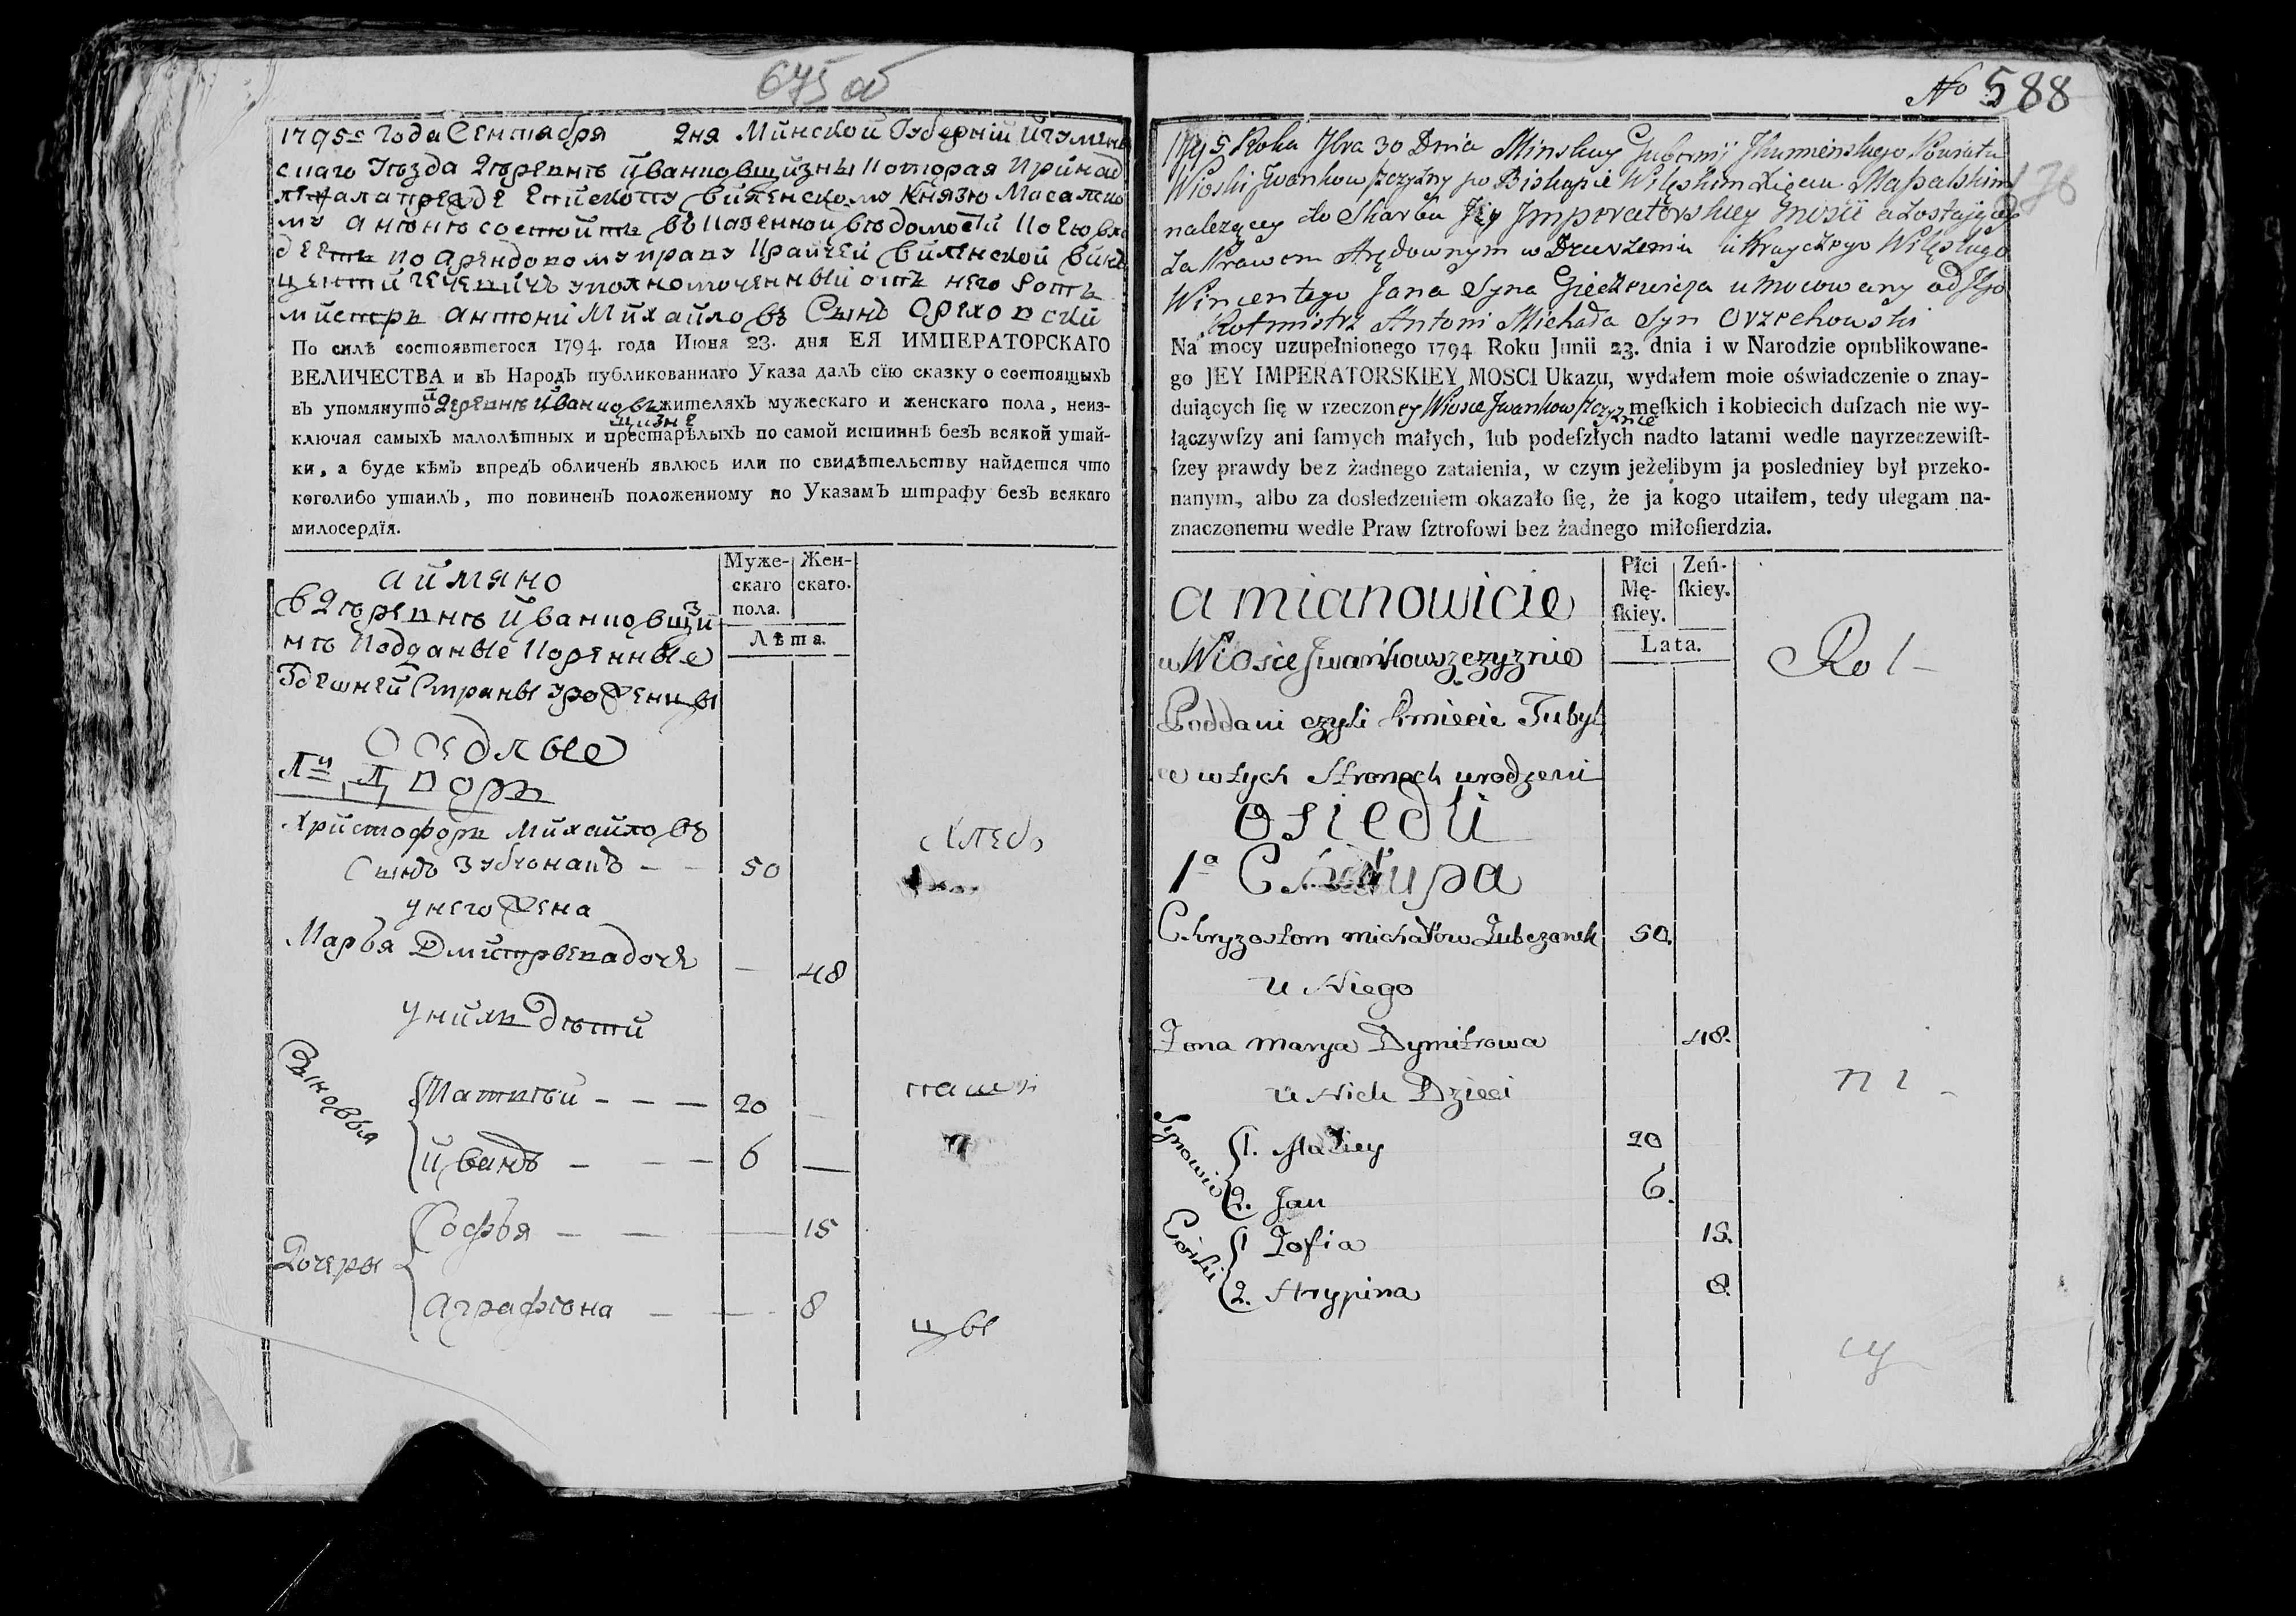 675 об
1795го года Сентября дня Минской Губерніи Игуменъ
скаго Уѣзда Деревнѣ Иванковщизны которая принад
лежала прежде Епископу Виленскому Князю Масалско
му а нынѣ состоитъ въ казенной вѣдомости кое ю вла
деетъ по арендовому праву Крайчей Виленской Вик
центи Гецевичъ уполномоченный отъ него Рот
мистръ Антони Михайловъ Сынъ Ореховски
По силѣ состоявшегося 1794. года Июня 23. дня ЕЯ ИМПЕРАТОРСКАГО
ВЕЛИЧЕСТВА и въ Народъ публикованнаго Указа далъ сїю сказку о состоящыхъ
въ упомянутой Деревнѣ Иванковщизне жителяхъ мужескаго и женскаго пола, неиз-
ключая самыхъ малолѣтных и престарѣлыхъ по самой истиннѣ безъ всякой утай-
ки, а буде кѣмъ впредъ обличенъ явлюсь или по свидѣтельству найдется что
коголибо утаилъ, то повиненъ положенному по Указамъ штрафу безъ всякаго
милосердїя.
Муже-скаго пола. Жен-скаго.
Лѣта.
а имяно
в Деревнѣ Иванковщиз
нѣ Подданые Коренные
Здешней Страны уроженцы
Оседлые
1й Дворъ
Христофоръ Михайловъ
Сынъ Зубчонакъ — — 50
у него Жена
Марья Дмитрьева дочь — 48
у нихъ дѣти
Сыновья
Матвѣй — — — 20 —
Иванъ — — — 6 —
Дочеры
Софья — — — 15
Аграфѣна — — 8
Хлебо
паши
цы
No 588
1795 Roku 7bra 30 Dnia Minskey Gubernij Ihumenskiego Powiatu
Wioski Iwankowszczyzny po Biskupie Wilęskim Xięciu Massalskim
należącey do Skarbu Jey Imperatorskiey Mości a zostającey
za Prawem Arędownym w Dzierżeniu u Krayczego Wilęskiego
Wincentego Jana Syna Giecewicza umocowany od Jego
Rotmistrz Antoni Michała Syn Orzechowski
Na mocy uzupełnionego 1794 Roku Junii 23. dnia i w Narodzie opublikowane-
go JEY IMPERATORSKIEY MOSCI Ukazu, wydałem moie oświadczenie o znay-
duiących ſię w rzeczoney Wiosce Iwankowszczyznie męſkich i kobiecich duſzach nie wy-
łączywſzy ani ſamych małych, lub podeſzłych nadto latami wedle nayrzeczewiſt-
ſzey prawdy bez żadnego zataienia, w czym jeżelibym ja posledniey był przeko-
nanym, albo za dosledzeniem okazało ſię, że ja kogo utaiłem, tedy ulegam na-
znaczonemu wedle Praw ſztrofowi bez żadnego miłoſierdzia.
Płci Mę-ſkiey. Zeń-ſkiey.
Lata.
a mianowicie
w Wiosce Iwańkowszczyznie
Poddani czyli Kmiecie Tubyl
ce w tych Stronach urodzeni
osiedli
1a Chałupa
Chryzostom michałow Zubczonek 50.
u Niego
Zona marya Dymitrowa 48.
u Nich Dzieci
Synowie
1. Maciey 20
2. Jan 6.
Corki
1 Zofia 15.
2. Agrypina 8.
Rol-
ni-
cy